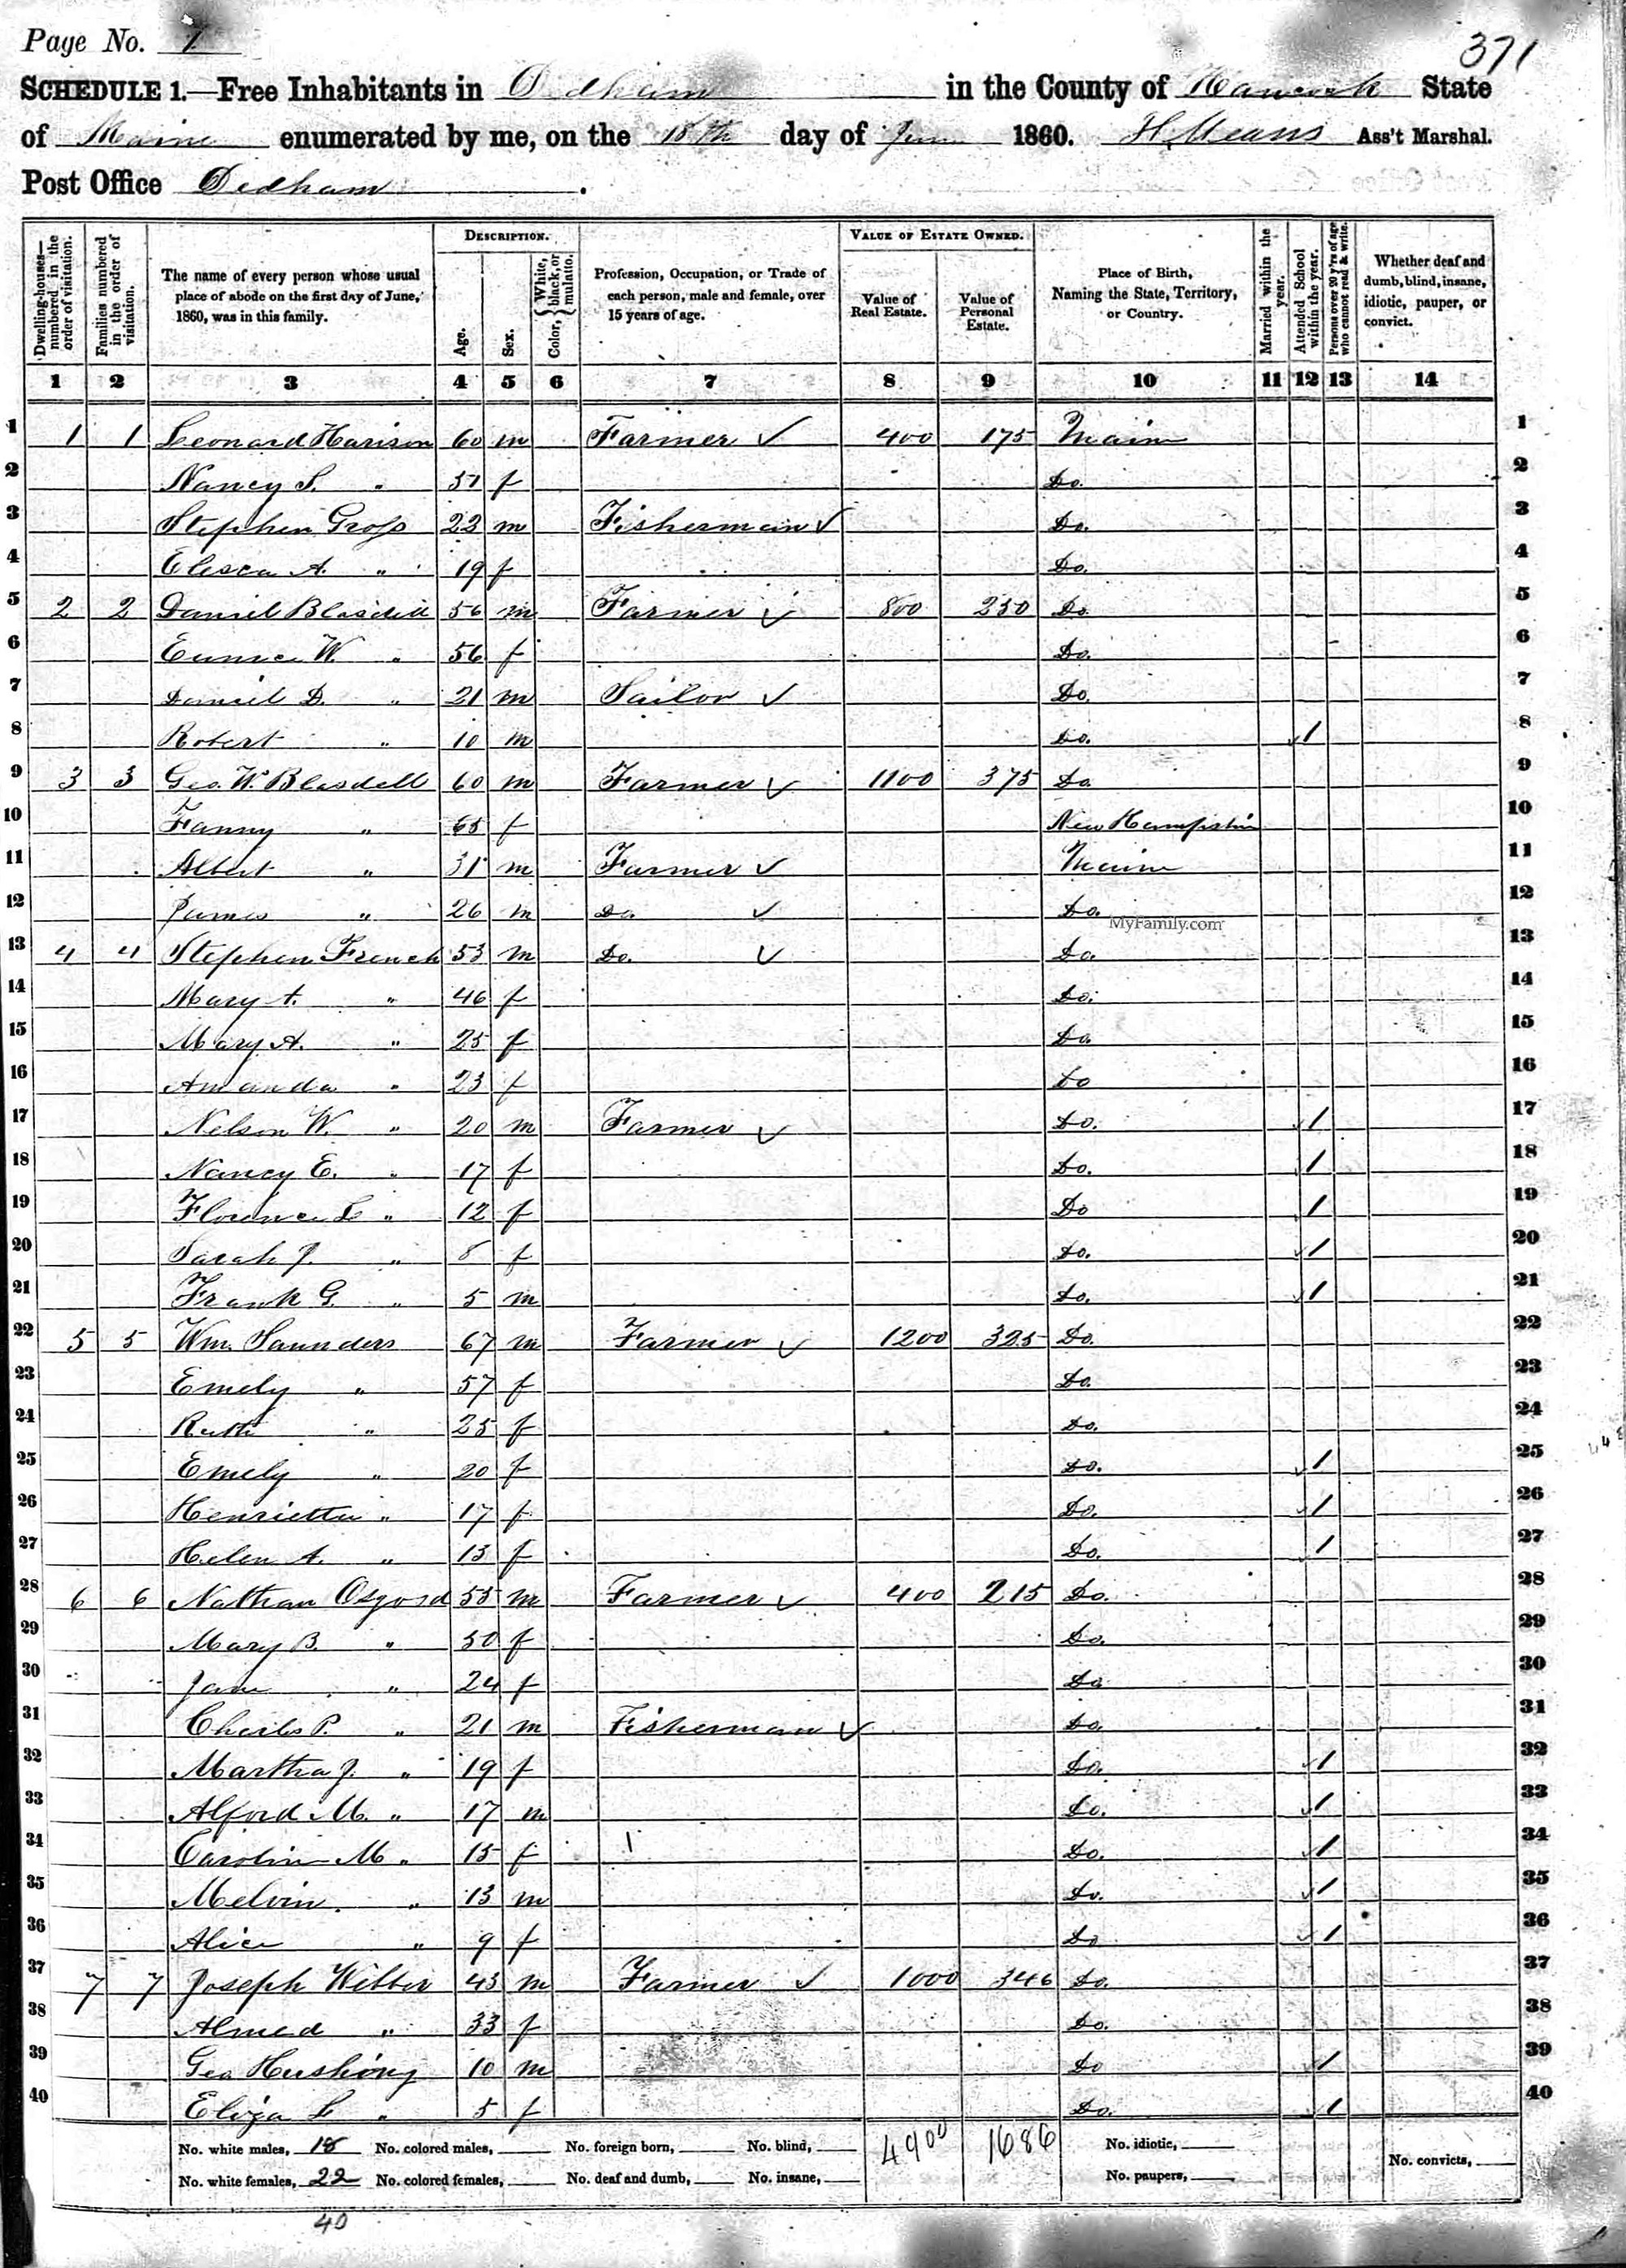 Page No. 1
371
SCHEDULE 1.—Free Inhabitants in Dedham in the County of Hancock State
of Maine enumerated by me, on the 18th day of June 1860. H. Means Ass't Marshal.
Post Office Dedham.
Dwelling-houses—numbered in the order of visitation.
Families numbered in the order of visitation.
The name of every person whose usual place of abode on the first day of June, 1860, was in this family.
DESCRIPTION.
Age.
Sex.
Color, { White, black, or mulatto.
Profession, Occupation, or Trade of each person, male and female, over 15 years of age.
VALUE OF ESTATE OWNED.
Value of Real Estate.
Value of Personal Estate.
Place of Birth, Naming the State, Territory, or Country.
Married within the year.
Attended School within the year.
Persons over 20 y'rs of age who cannot read & write.
Whether deaf and dumb, blind, insane, idiotic, pauper, or convict.
1 2 3 4 5 6 7 8 9 10 11 12 13 14
1 1 1 Leonard Harison 60 m Farmer ✓ 400 175 Maine 1
2 Nancy S. " f Do. 2
3 Stephen Gross 22 m Fisherman ✓ Do. 3
4 A. " 19 f Do. 4
5 2 2 Daniel Blasdell 56 m Farmer ✓ 800 250 Do. 5
6 Eunice W. " 56 f Do. 6
7 Daniel D. " 21 m Sailor ✓ Do. 7
8 Robert " 10 m Do. 1 8
9 3 3 Geo. W. Blasdell 60 m Farmer ✓ 1100 375 Do. 9
10 Fanny " 65 f New Hampshire 10
11 Albert " 31 m Farmer ✓ Maine 11
12 James " 26 m Do. ✓ Do. 12
MyFamily.com
13 4 4 Stephen French 53 m Do. ✓ Do. 13
14 Mary " 46 f Do. 14
15 Mary A. " 25 f Do. 15
16 Amanda " 23 f Do 16
17 Nelson W. " 20 m Farmer ✓ Do. 1 17
18 Nancy E. " 17 f Do. 1 18
19 Florence L " 12 f Do 1 19
20 Sarah J. " 8 f Do. 1 20
21 Frank G. " 5 m Do. 1 21
22 5 5 Wm. Saunders 67 m Farmer ✓ 1200 325 Do. 22
23 Emely " 57 f Do. 23
24 Ruth " 25 f Do. 24
25 Emely " 20 f Do. 1 25
26 Henrietta " 17 f Do. 1 26
27 Helen A. " 13 f Do. 1 27
28 6 6 Nathan Osgood 55 m Farmer ✓ 400 215 Do. 28
29 Mary B. " 50 f Do. 29
30 Jane " 24 f Do 30
31 Charles P. " 21 m Fisherman ✓ Do. 31
32 Martha J. " 19 f Do. 1 32
33 Alford M. " 17 m Do. 1 33
34 Caroline M " 15 f Do. 1 34
35 Melvin " 13 m Do. 1 35
36 Alice " 9 f Do 1 36
37 7 7 Joseph Wibber 43 m Farmer ✓ 1000 346 Do. 37
38 Almeda " 33 f Do. 38
39 Geo 10 m Do 1 39
40 Eliza L " 5 f Do. 1 40
No. white males, 18 No. colored males, No. foreign born, No. blind, 4900 1686 No. idiotic,
No. white females, 22 No. colored females, No. deaf and dumb, No. insane, No. paupers, No. convicts,
40